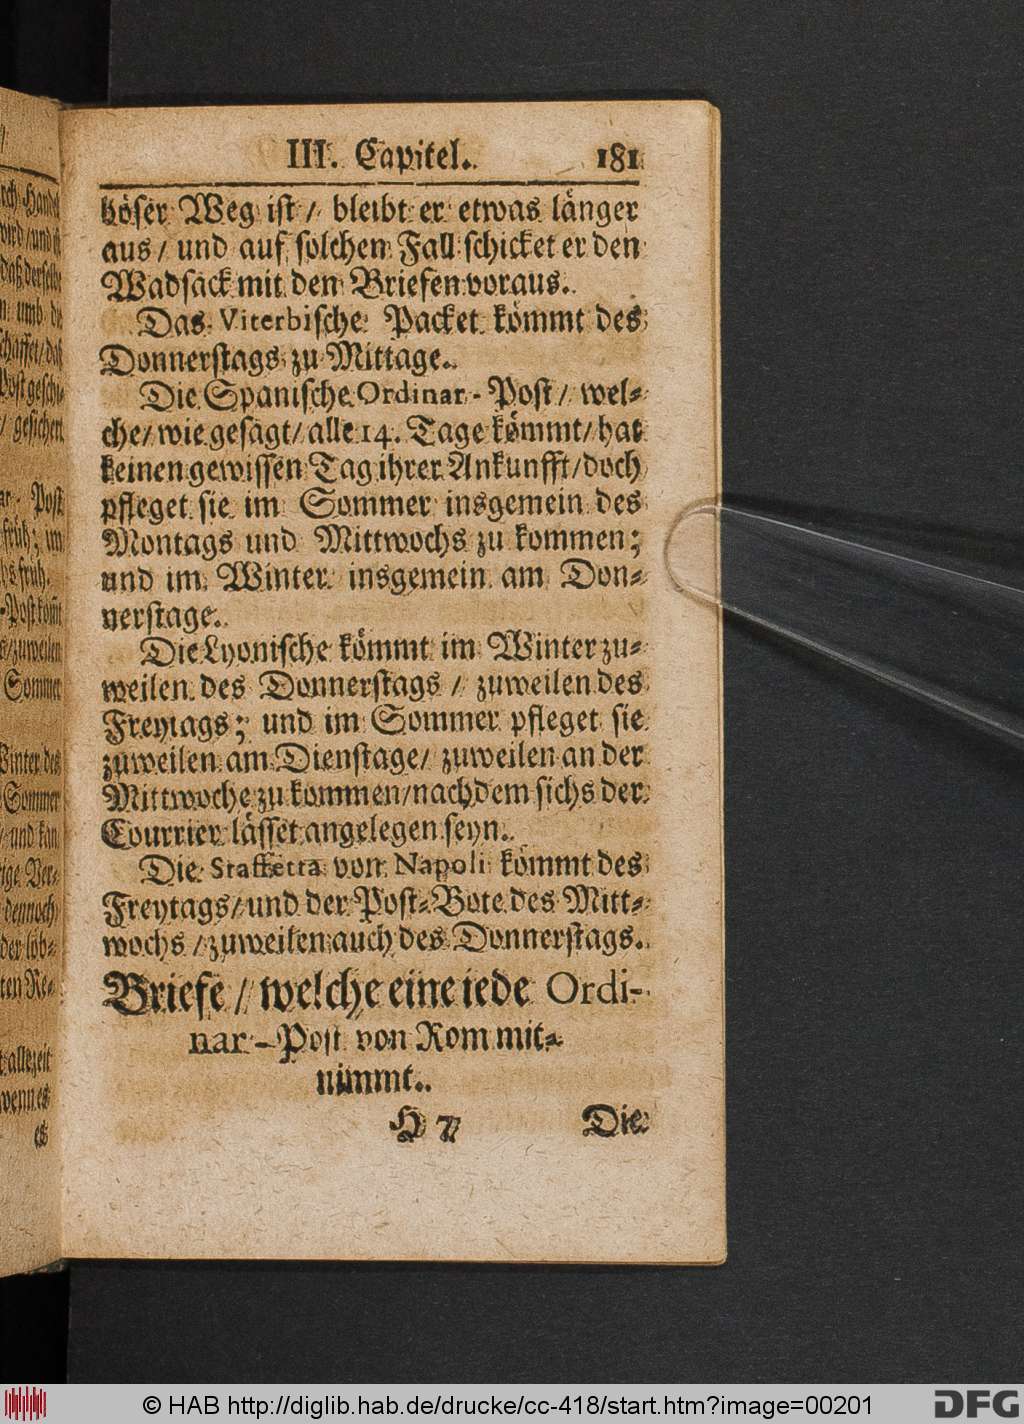 III. Capitel. 181
böser Weg ist / bleibt er etwas länger
aus / und auf solchen Fall schicket er den
Wadsäck mit den Briefen voraus.
Das Viterbische Packet kömmt des
Donnerstags zu Mittage.
Die Spanische Ordinar-Post / wel-
che / wie gesagt / alle 14. Tage kömmt / hat
keinen gewissen Tag ihrer Ankunfft / doch
pfleget sie im Sommer insgemein des
Montags und Mittwochs zu kommen;
und im Winter insgemein am Don-
nerstage.
Die Lyonische kömmt im Winter zu-
weilen des Donnerstags / zuweilen des
Freytags; und im Sommer pfleget sie
zuweilen am Dienstage / zuweilen an der
Mittwoche zu kommen / nachdem sichs der
Courrier lässet angelegen seyn.
Die Staffetta von Napoli kömmt des
Freytags / und der Post-Bote des Mitt-
wochs / zuweilen auch des Donnerstags.
Briefe / welche eine iede Ordi-
nar-Post von Rom mit-
nimmt.
H 7 Die
© HAB http://diglib.hab.de/drucke/cc-418/start.htm?image=00201
DFG